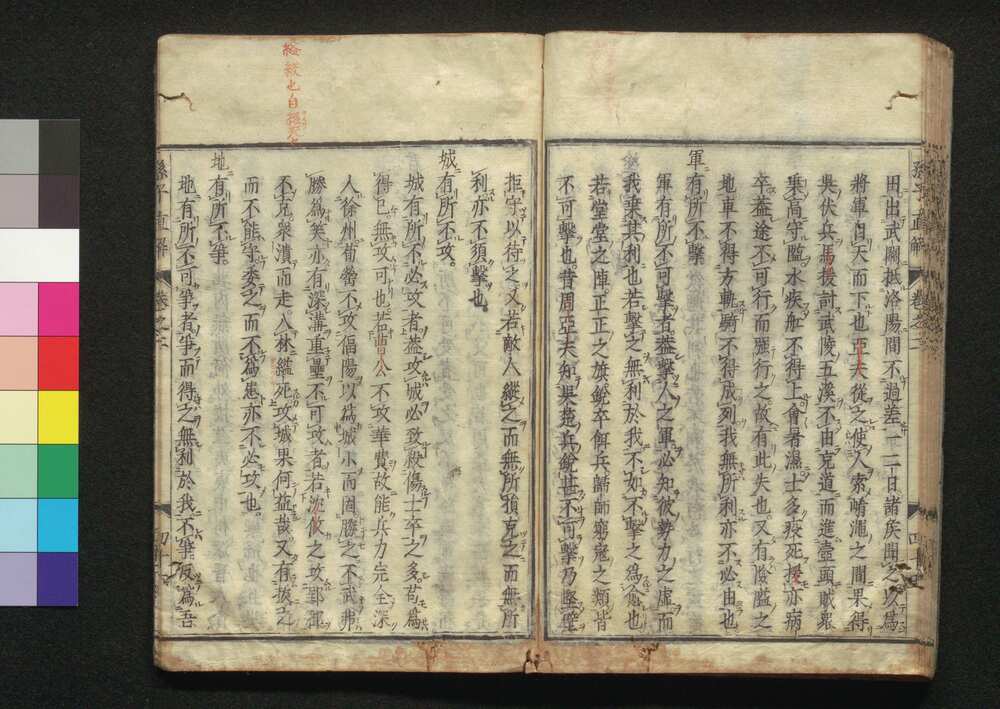 田出武關抵洛陽間不過差一二日諸侯聞之以爲
將軍自天而下也亞夫從之使人索崤澠之間果得
吳伏兵馬援討武陵五溪不由充道而進壺頭賊
乘高守隘水疾舩不得上會暑濕士多疫死援亦病
卒蓋途不可行而强行之故有此失也又有險隘之
地車不得方軌騎不得成列我無所利亦不必由也
軍有所不擊
軍有所不可擊者蓋擊人之軍必知彼勢力之虛而
我乗其利也若擊之無利於我不如不擊之爲愈也
若堂堂之陣正正之旗銳卒餌兵歸師窮寇之類皆
不可擊也昔周亞夫知吳楚兵銳甚不可擊乃堅壁
拒守以待之又若敵人縱之而無所損克之而無所
利亦不須擊也
城有所不攻
城有所不必攻者蓋攻城必致殺傷士卒之多苟爲
得已無攻可也若曹公不攻華費故能兵力完全深
人徐州荀罃不攻偪陽以爲城小而固勝之不武弗
勝爲笑亦有深溝重壘不可攻者若沈攸之攻郢郡
不克衆潰而走入林縊死攻城果何益哉又有拔之
而不能守委之而不爲患亦不必攻也
地有所不爭
地有所不可爭者爭而得之無利於我不爭反爲吾
孫子直解
卷之二
縊
也自經死